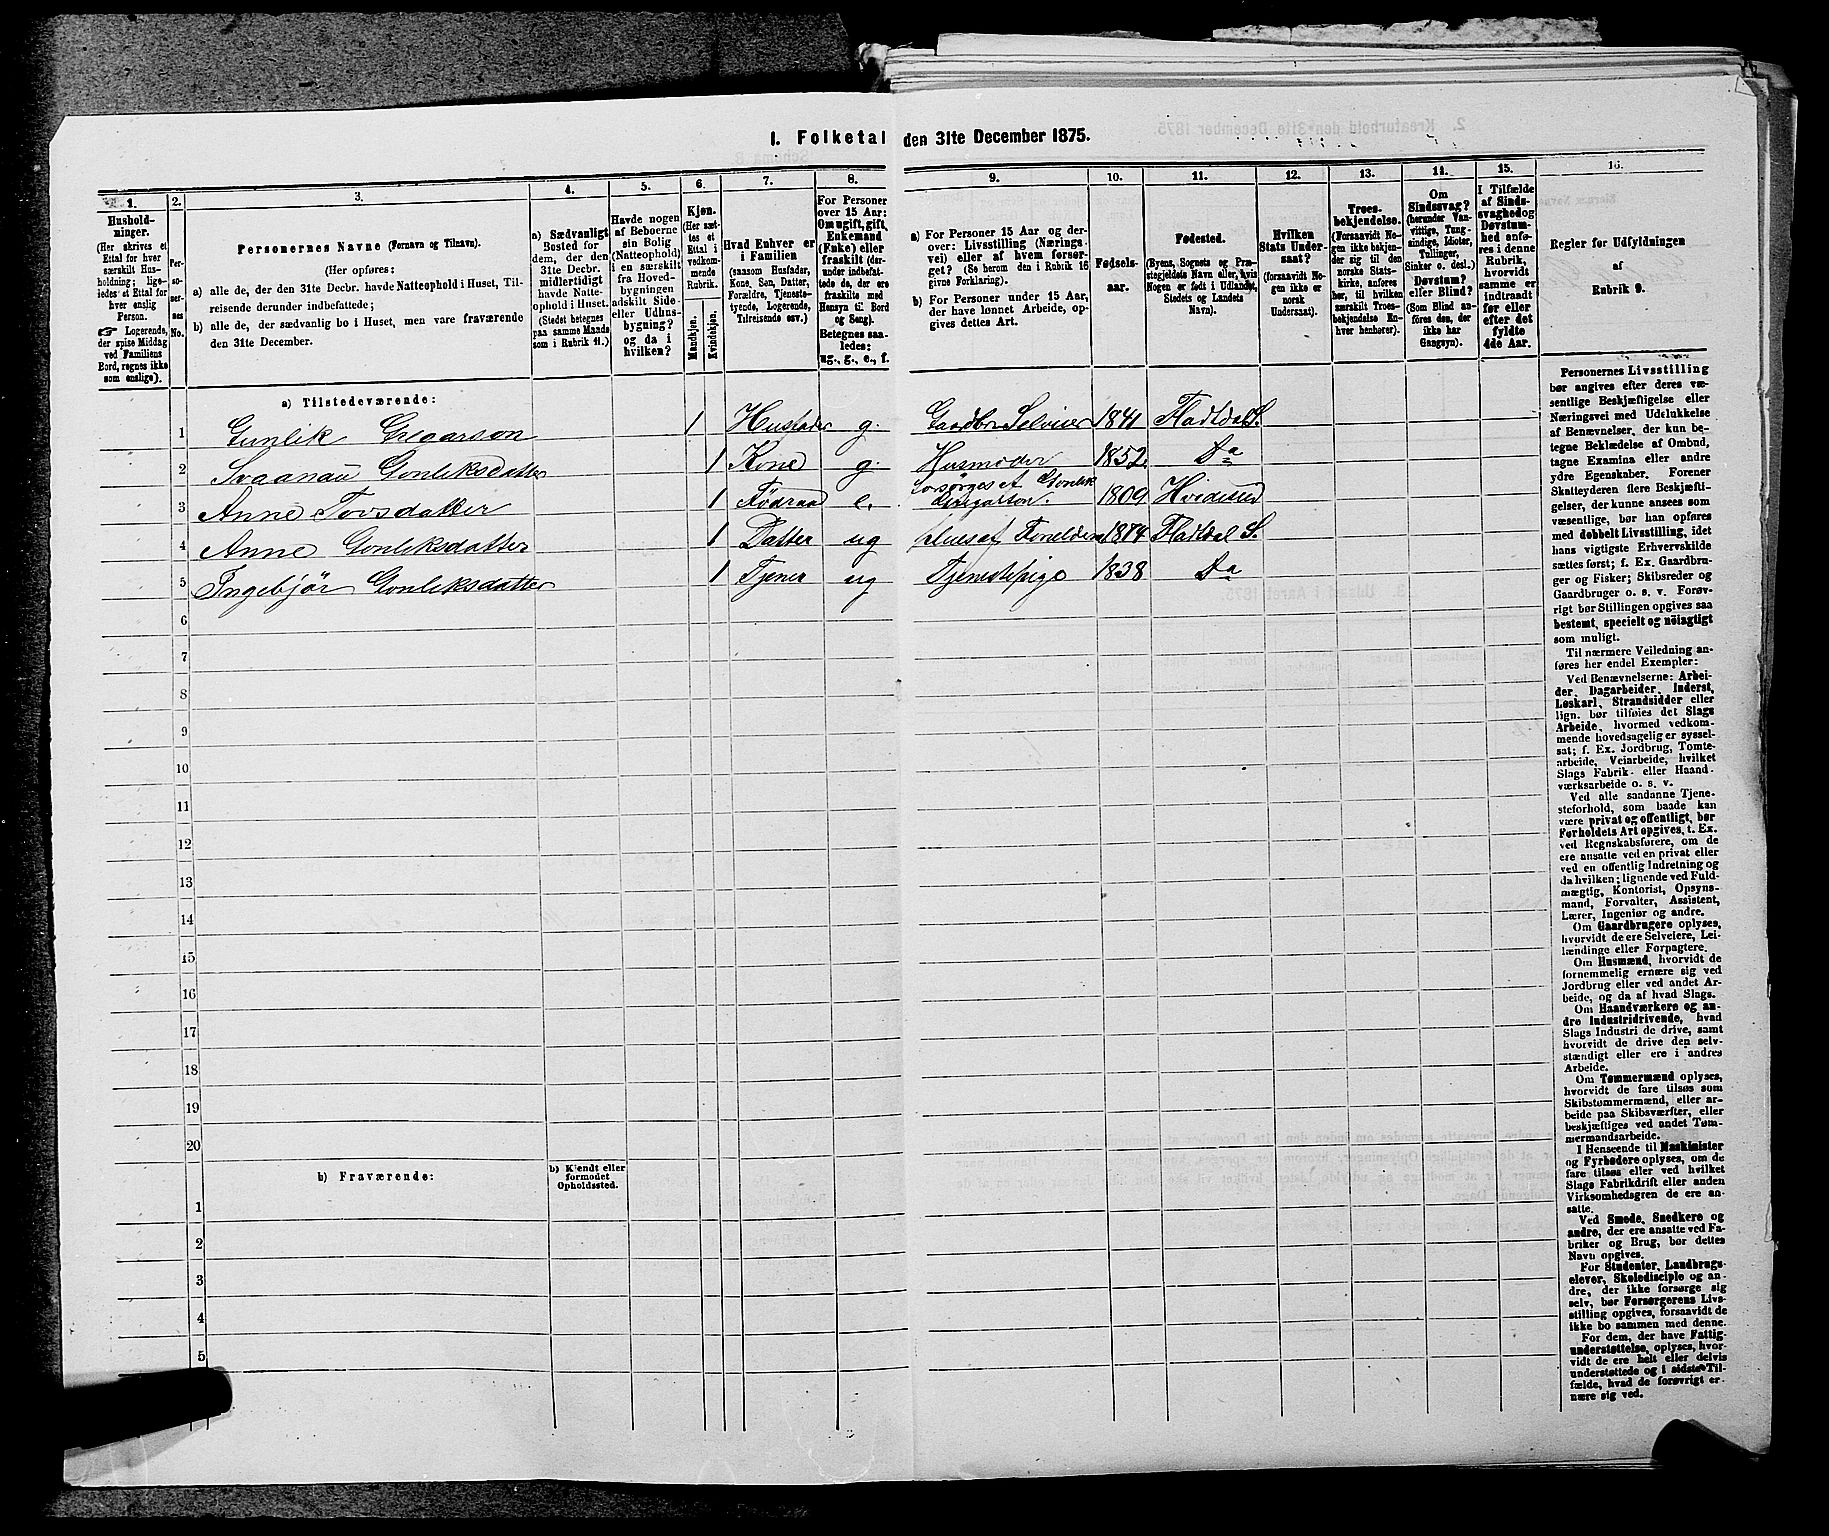 1. Folketal den 31te December 1875.
1. 2. 3. 4. 5. 6. 7. 8. 9. 10. 11. 12. 13. 14. 15. 16.
Hushold-
ninger.
(Her skrives et
Ettal for hver
særskilt Hus-
holdning; lige-
ledes et Ettal for
hver enslig
Person.
☞ Logerende,
der spise Middag
ved Familiens
Bord, regnes ikke
som enslige).
Per-
so-
ner-
nes
No.
Personernes Navne (Fornavn og Tilnavn).
(Her opføres:
a) alle de, der den 31te Decbr. havde Natteophold i Huset, Til-
reisende derunder indbefattede;
b) alle de, der sædvanlig bo i Huset, men vare fraværende
den 31te December.
a) Sædvanligt
Bosted for
dem, der den
31te Decbr.
midlertidigt
havde Natte-
ophold i Huset.
(Stedet betegnes
paa samme Maade
som i Rubrik 11.)
Havde nogen
af Beboerne
sin Bolig
(Natteophold)
i en særskilt
fra Hoved-
bygningen
adskilt Side-
eller Udhus-
bygning?
og da i
hvilken?
Kjøn.
(Her sæt-
tes et
Ettal i
vedkom-
mende
Rubrik.
Mandkjøn.
Kvindekjøn.
Hvad Enhver er
i Familien
(saasom Husfader,
Kone, Søn, Datter,
Forældre, Tjeneste-
tyende, Logerende,
Tilreisende osv.)
For Personer
over 15 Aar:
Om ugift, gift,
Enkemand
(Enke) eller
fraskilt (der-
under indbefat-
tede de, der ere
fraskilte med
Hensyn til Bord
og Seng).
Betegnes saa-
ledes:
ug., g., e., f.
a) For Personer 15 Aar og der-
over: Livsstilling (Nærings-
vei) eller af hvem forsør-
get? (Se herom den i Rubrik 16
givne Forklaring).
b) For Personer under 15 Aar,
der have lønnet Arbeide, op-
gives dettes Art.
Fødsels-
aar.
Fødested.
(Byens, Sognets og Præ-
stegjeldets Navn eller, hvis
Nogen er født i Udlandet,
Stedets og Landets
Navn).
Hvilken
Stats Under-
saat?
(forsaavidt No-
gen ikke er
norsk
Undersaat).
Troes-
bekjendelse.
(Forsaavidt No-
gen ikke bekjen-
der sig til den
norske Stats-
kirke, anføres
her, til hvilken
særskilt Troes-
bekjendelse En-
hver henhører).
Om
Sindssvag?
(herunder Van-
vittige, Tung-
sindige, Idioter,
Tullinger,
Sinker o. desl.)
Døvstum?
eller Blind?
(Som Blind an-
føres den, der
ikke har
Gangsyn).
I Tilfælde
af Sinds-
svaghed og
Døvstum-
hed anfø-
res i denne
Rubrik,
hvorvidt
samme er
indtraadt
før eller
efter det
fyldte
4de Aar.
Regler før Udfyldningen
af
Rubrik 9.
a) Tilstedeværende:
1 Gunlik Gregarson 1 Husfader g. Gaardbr. Selveier 1841 Fladdal S.
2 Svaanau Gonleksdatter 1 Kone g. Husmoder 1852 Do
3 Anne Tovsdatter 1 Fødraad e. forsørges af Gonlik 1809 Hvideseid
4 Anne Gonleksdatter 1 Datter ug 1874 Fladdal S.
5 Ingebjør Gonleksdatter 1 Tjener ug Tjenestepige 1838 Do
6
7
8
9
10
11
12
13
14
15
16
17
18
19
20
b) Fraværende:
b) Kjendt eller
formodet
Opholdssted.
1
2
3
4
5
Personernes Livsstilling
bør angives efter deres væ-
sentlige Beskjæftigelse eller
Næringsvei med Udelukkelse
af Benævnelser, der kun be-
tegne Beklædelse af Ombud,
tagne Examina eller andre
ydre Egenskaber. Forener
Skatteyderen flere Beskjæfti-
gelser, der kunne ansees som
væsentlige, bør han opføres
med dobbelt Livsstilling, idet
hans vigtigste Erhvervskilde
sættes først; f. Ex. Gaardbru-
ger og Fisker; Skibsreder og
Gaardbruger o. s. v. Forøv-
rigt bør Stillingen opgives saa
bestemt, specielt og nøiagtigt
som muligt.
Til nærmere Veiledning an-
føres her endel Exempler:
Ved Benævnelserne: Arbei-
der, Dagarbeider, Inderst,
Løskarl, Strandsidder eller
lign. bør tilføies det Slags
Arbeide, hvormed vedkom-
mende hovedsagelig er syssel-
sat; f. Ex. Jordbrug, Tomte-
arbeide, Veiarbeide, hvilket
Slags Fabrik- eller Haand-
værksarbeide o. s. v.
Ved alle saadanne Tjene-
steforhold, som baade kan
være privat og offentligt, bør
Forholdets Art opgives, t. Ex.
ved Regnskabsførere, om de
ere ansatte ved en privat eller
ved en offentlig Indretning og
da hvilken; lignende ved Fuld-
mægtig, Kontorist, Opsyns-
mand, Forvalter, Assistent,
Lærer, Ingeniør og andre.
Om Gaardbrugere oplyses,
hvorvidt de ere Selveiere, Lei-
lændinge eller Forpagtere.
Om Husmænd, hvorvidt de
fornemmelig ernære sig ved
Jordbrug eller ved andet Ar-
beide, og da af hvad Slags.
Om Haandværkere og an-
dre Industridrivende, hvad
Slags Industri de drive, samt
hvorvidt de drive den selv-
stændigt eller ere i andres
Arbeide.
Om Tømmermænd oplyses,
hvorvidt de fare tilsøs som
Skibstømmermænd, eller ar-
beide paa Skibsværfter, eller
beskjæftiges ved andet Tøm-
mermandsarbeide.
I Henseende til Maskinister
og Fyrbødere oplyses, om de
fare tilsøs eller ved hvilket
Slags Fabrikdrift eller anden
Virksomhedsgren de ere an-
satte.
Ved Smede, Snedkere og
andre, der ere ansatte ved Fa-
briker og Brug, bør dettes
Navn opgives.
For Studenter, Landbrugs-
elever, Skoledisciple og an-
dre, der ikke forsørge sig
selv, bør Forsørgerens Livs-
stilling opgives, forsaavidt de
ikke bo sammen med denne.
For dem, der have Fattig-
understøttelse, oplyses, hvor-
vidt de ere helt eller delvis
understøttede og i sidste Til-
fælde, hvad de forøvrigt er-
nære sig ved.